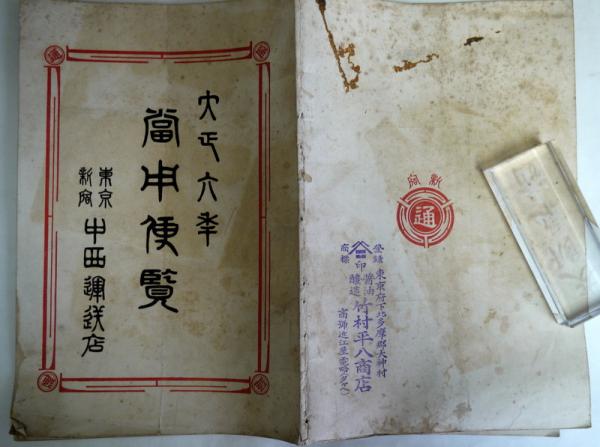 大正六年
當用便覽
東京
新宿
中西運送店
新宿
通
登録
商標
印
醤油
醸造
東京府下北多摩郡天神村
竹村平八商店
商號近江屋電略(タマ)